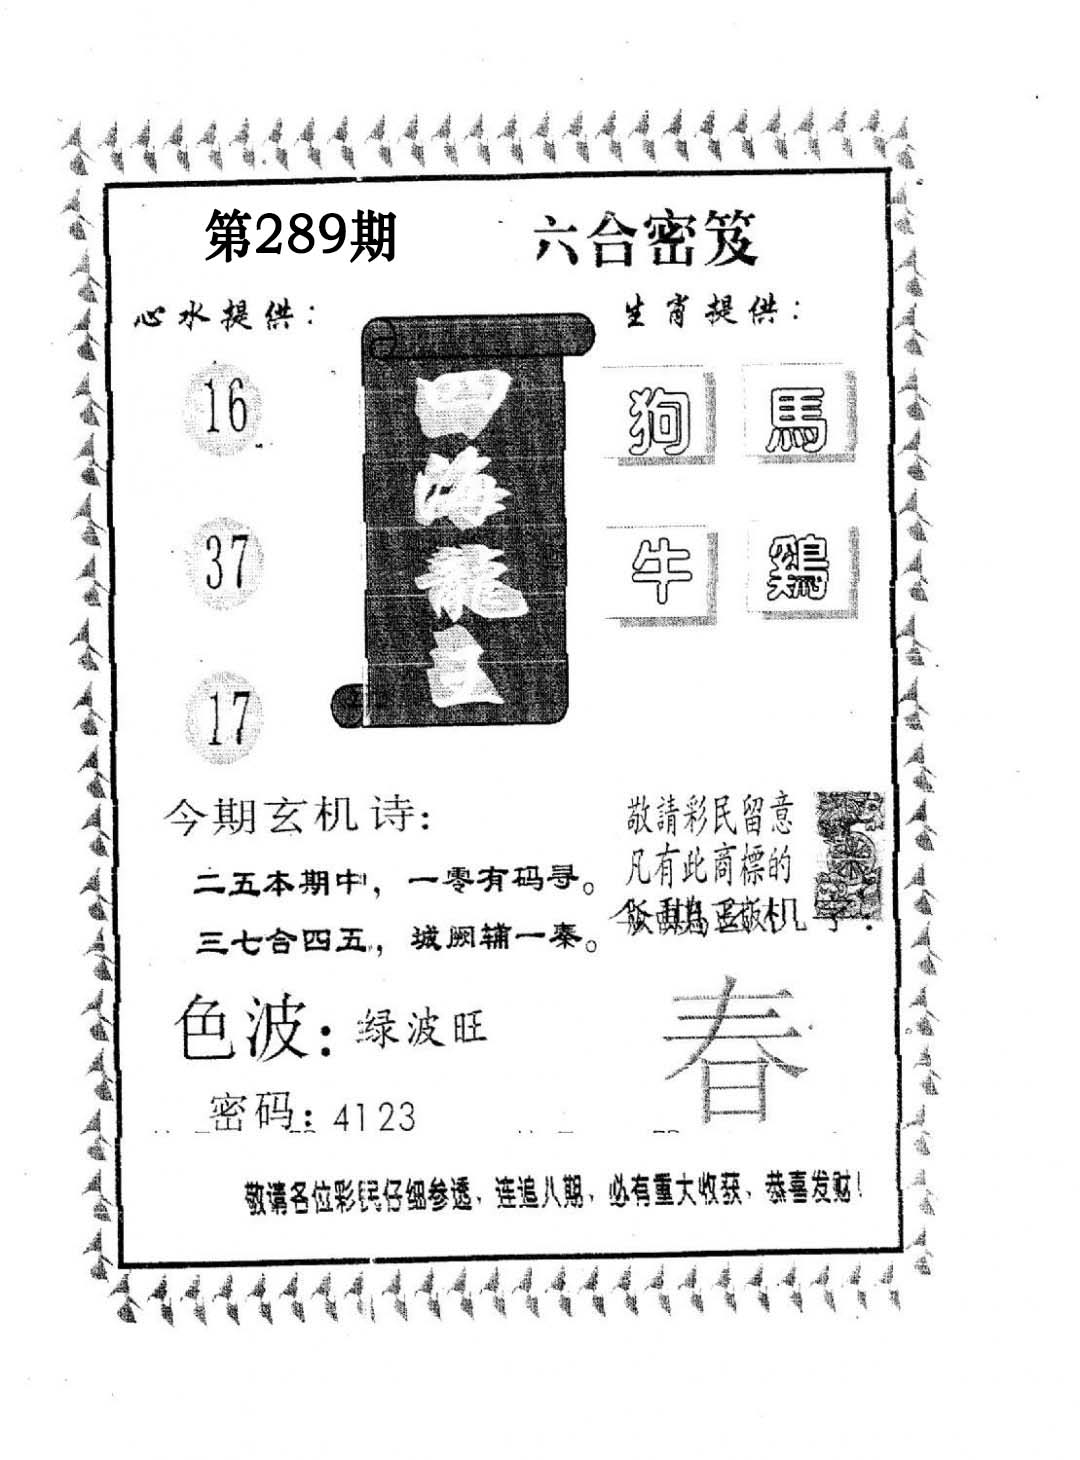 第289期
六合密笈
心水提供：
生肖提供：
16
37
17
四海龍王
狗
馬
牛
鷄
今期玄机诗：
二五本期中，一零有码寻。
三七合四五，城阙辅一秦。
敬請彩民留意
凡有此商標的
色波：绿波旺
密码：4123
春
敬请各位彩民仔细参透、连追八期、必有重大收获、恭喜发财！